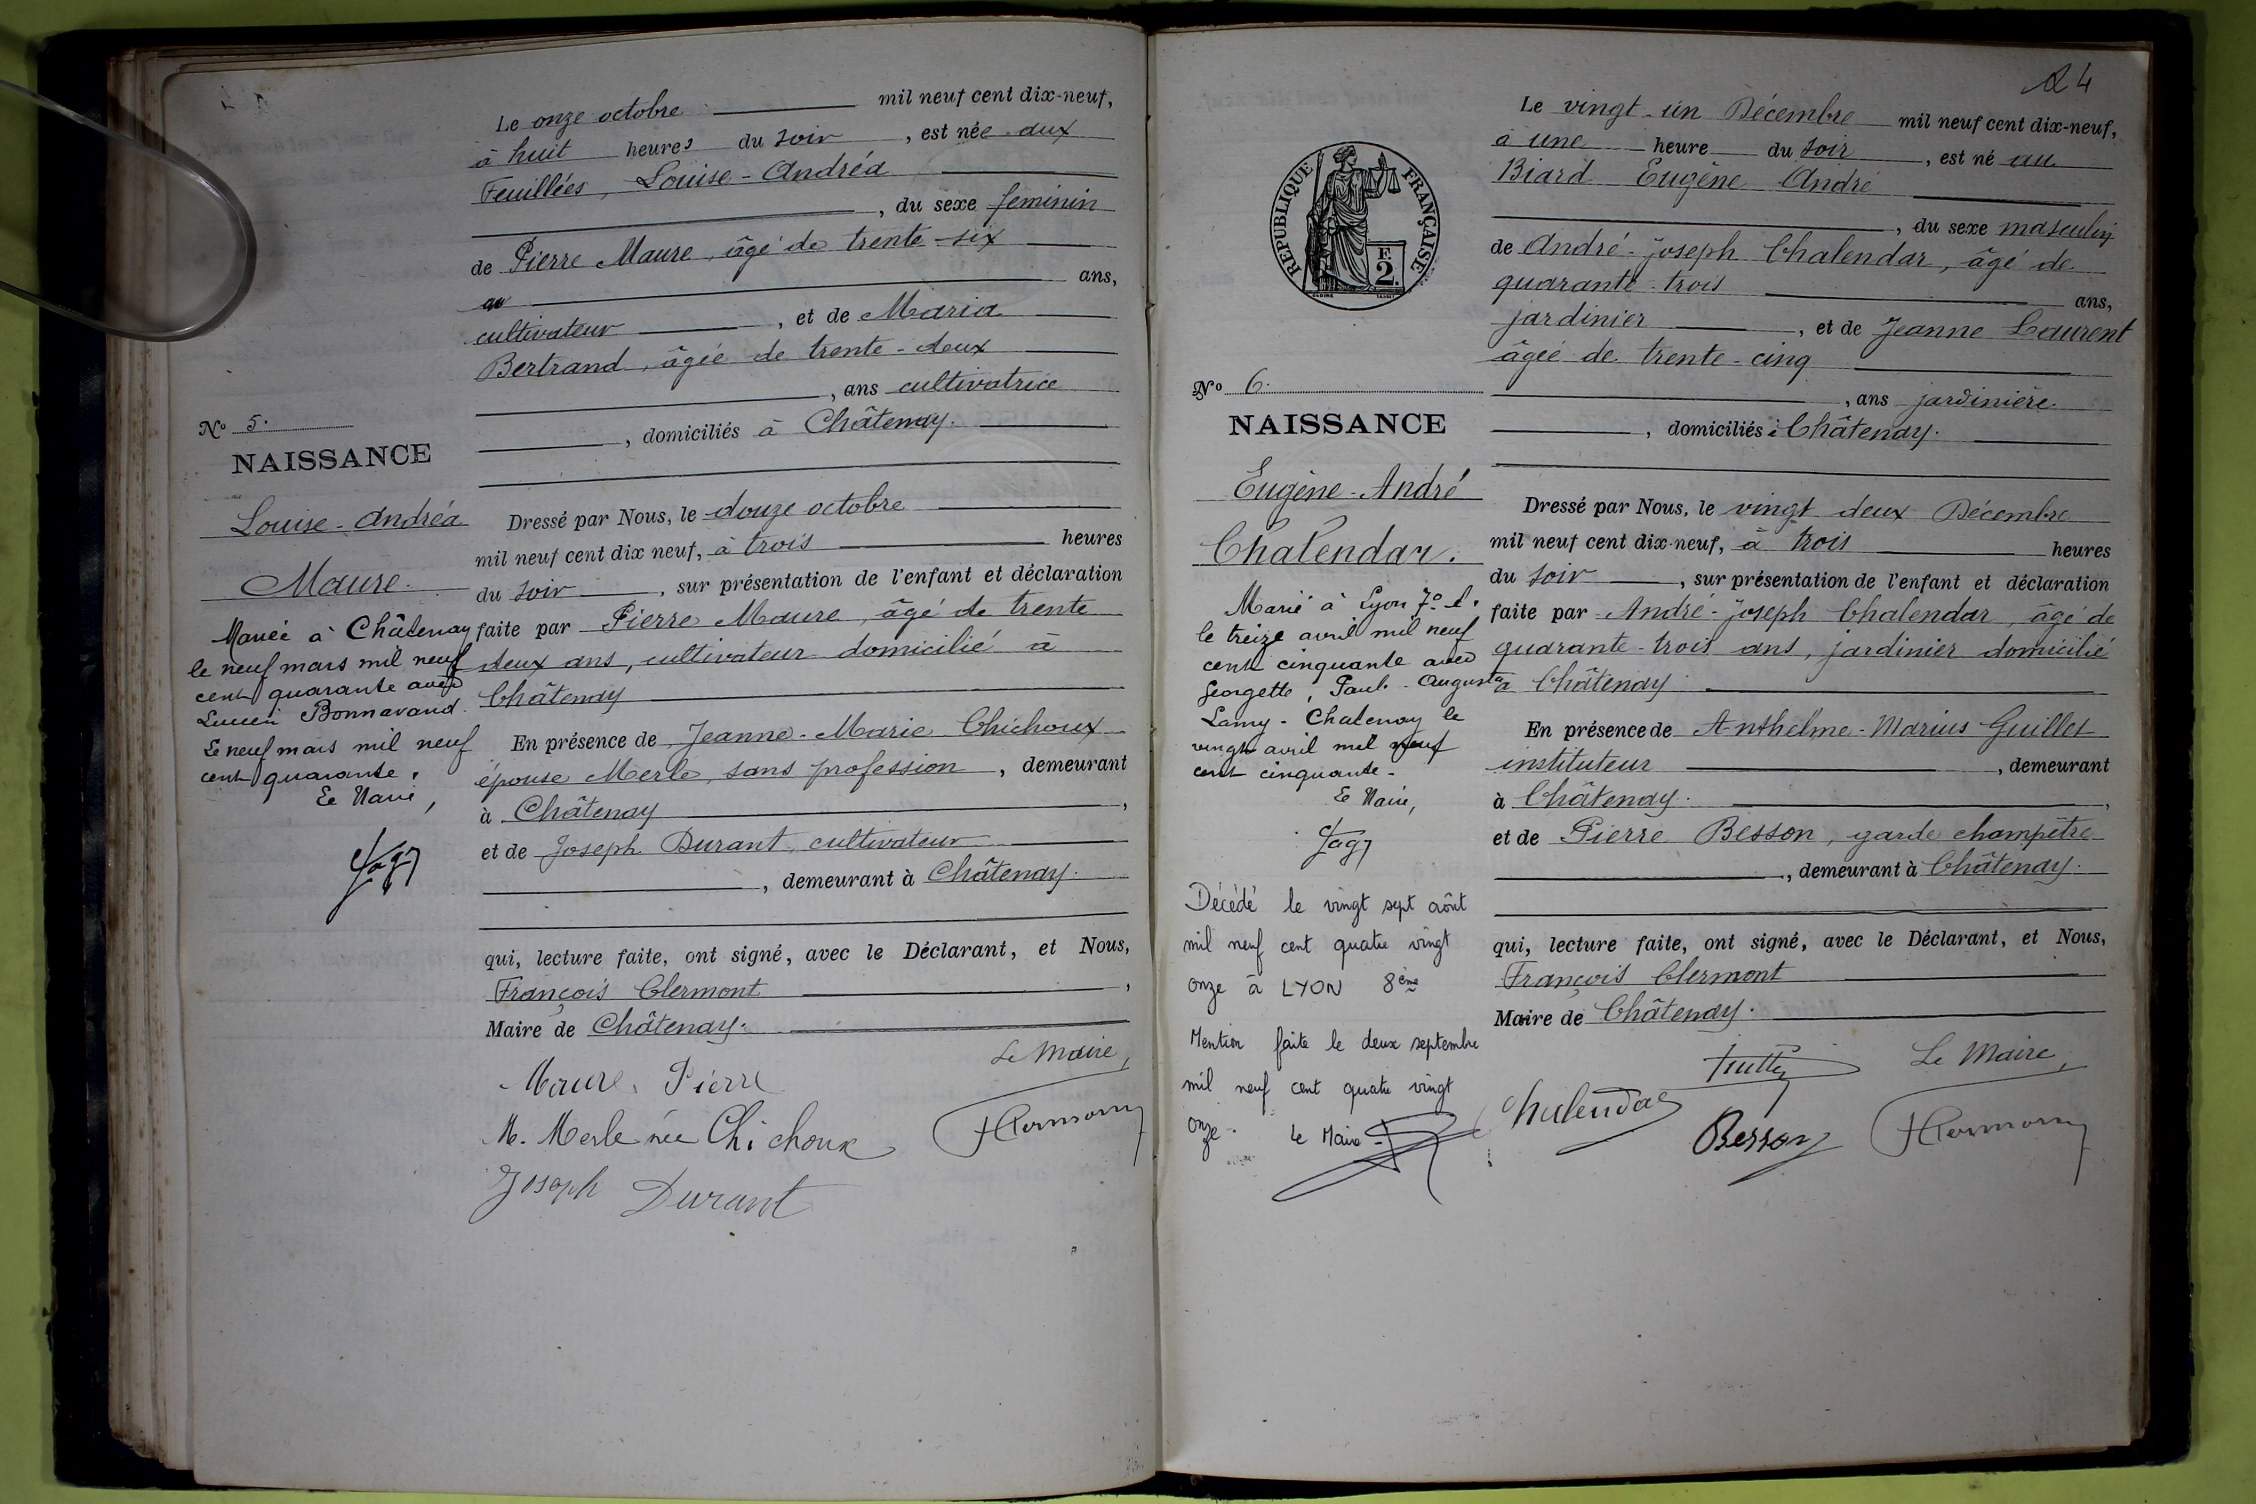 Le onze octobre mil neuf cent dix-neuf,
à huit heures du soir, est née aux
Feuillées, Louise-Andréa
, du sexe feminin
de Pierre Maure, âgé de trente-six
ans,
cultivateur, et de Maria
Bertrand, âgée de trente-deux
, ans cultivatrice
, domiciliés à Châtenay.
No 5.
NAISSANCE
Louise-Andréa
Maure.
Mariée à Châtenay
le neuf mars mil neuf
cent quarante avec
Lucien Bonnavand.
Le neuf mars mil neuf
cent quarante.
Le Maire,
Dressé par Nous, le douze octobre
mil neuf cent dix neuf, à trois heures
du soir, sur présentation de l'enfant et déclaration
faite par Pierre Maure, âgé de trente
deux ans, cultivateur domicilié à
Châtenay
En présence de Jeanne-Marie Chichoux
épouse Merle, sans profession, demeurant
à Châtenay,
et de Joseph Durant cultivateur
, demeurant à Châtenay.
qui, lecture faite, ont signé, avec le Déclarant, et Nous,
François Clermont,
Maire de Châtenay.
Le Maire,
Maure Pierre
M. Merle née Chichoux
FClermont
Joseph Durant
24
RÉPUBLIQUE FRANÇAISE
F.
2.
Le vingt-un Décembre mil neuf cent dix-neuf,
à une heure du soir, est né au
Biard Eugène André
, du sexe masculin
de André-Joseph Chalendar, âgé de
quarante-trois ans,
jardinier, et de Jeanne Laurent
âgée de trente-cinq
, ans jardinière.
, domiciliés à Châtenay.
No 6.
NAISSANCE
Eugène-André
Chalendar.
Marié à Lyon 7e
le treize avril mil neuf
cent cinquante avec
Georgette, Paule-Augusta
Lamy-Chatenay le
vingt avril mil neuf
cent cinquante-
Le Maire,
Décédé le vingt sept août
mil neuf cent quatre vingt
onze à LYON 8ème
Mention faite le deux septembre
mil neuf cent quatre vingt
onze.
Le Maire-
Dressé par Nous, le vingt deux Décembre
mil neuf cent dix-neuf, à trois heures
du soir, sur présentation de l'enfant et déclaration
faite par André-Joseph Chalendar, âgé de
quarante-trois ans, jardinier domicilié
à Châtenay
En présence de Anthelme-Marius Guillet
instituteur, demeurant
à Châtenay.,
et de Pierre Besson, garde champêtre
, demeurant à Châtenay.
qui, lecture faite, ont signé, avec le Déclarant, et Nous,
François Clermont
Maire de Châtenay.
Le Maire,
Chalendar
Besson
FClermont